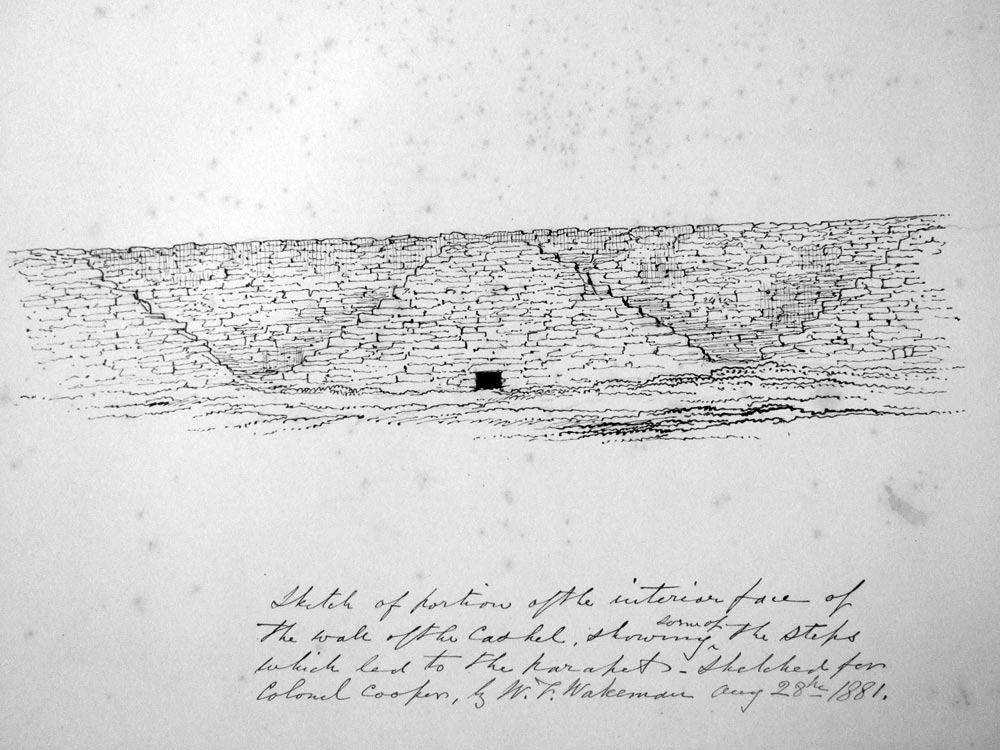 Sketch of portion of the interior face of
the wall of the Cashel, showing some of the steps
which led to the parapet - Sketched for
Colonel Cooper, by W. F. Wakeman Aug 28th 1881.